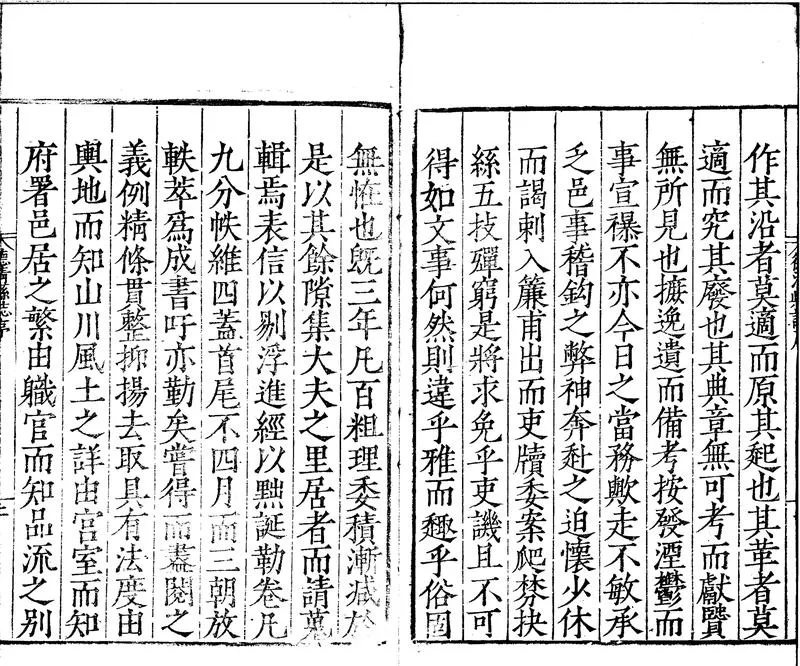 作其沿者莫適而原其起也其革者莫
適而究其廢也其典章無可考而獻賢
無所見也摭逸遺而備考按發湮鬱而
事宣襮不亦今日之當務歟走不敏承
乏邑事稽鈎之弊神奔赴之迫懷少休
而謁刺入簾甫出而吏牘委案爬棼抉
絲五技殫窮是將求免乎吏譏且不可
得如文事何然則違乎雅而趨乎俗固
無恠也既三年凡百粗理委積漸减於
是以其餘隙集大夫之里居者而請蒐
輯焉表信以剔浮進經以黜誕勒卷凡
九分帙維四蓋首尾不四月而三朝放
軼萃爲成書吁亦勤矣嘗得而葢閱之
義例精條貫整抑揚去取具有法度由
輿地而知山川風土之詳由宫室而知
府署邑居之繁由職官而知品流之别
德清縣志序